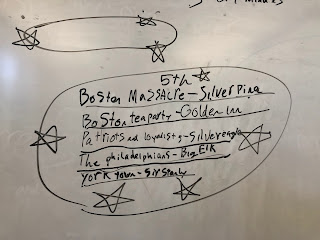 5th
Boston Massacre - Silver Pine
Boston teaparty - Golden Inn
Patriots and loyalists - Silver eagle
The philadelphians - Big Elk
York town -